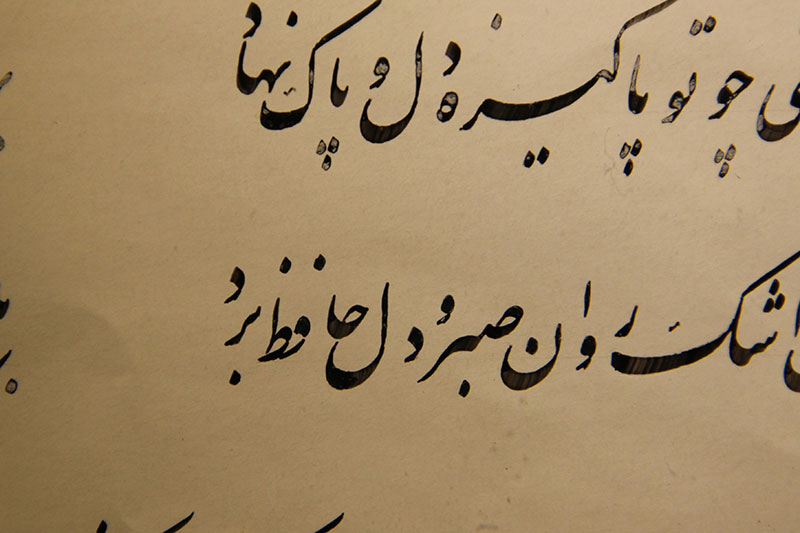 چو تو پاکیزه دل و پاک نهاد
اشک روان صبر و دل حافظ برد